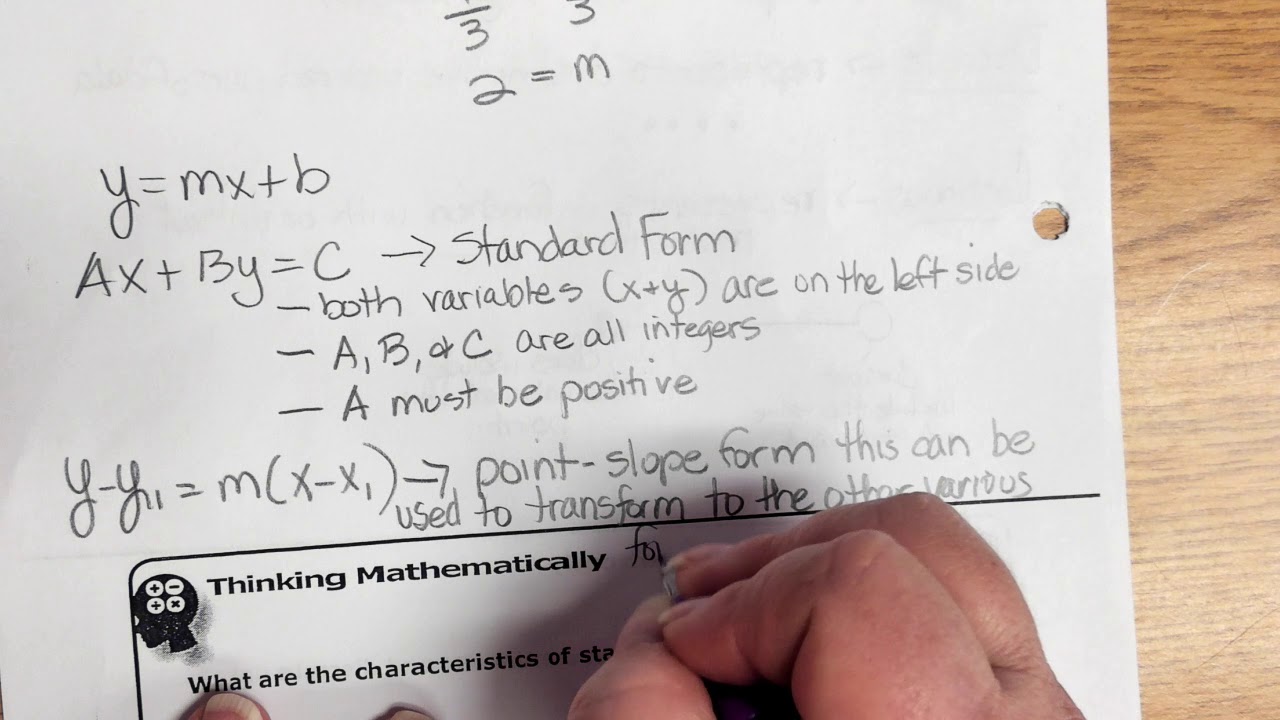 3 3
2 = m
y = mx + b
Ax + By = C → Standard Form
— both variables (x+y) are on the left side
— A, B, & C are all integers
— A must be positive
y - y₁ = m(x - x₁) → point-slope form this can be
used to transform to the other various
Thinking Mathematically fo
What are the characteristics of sta